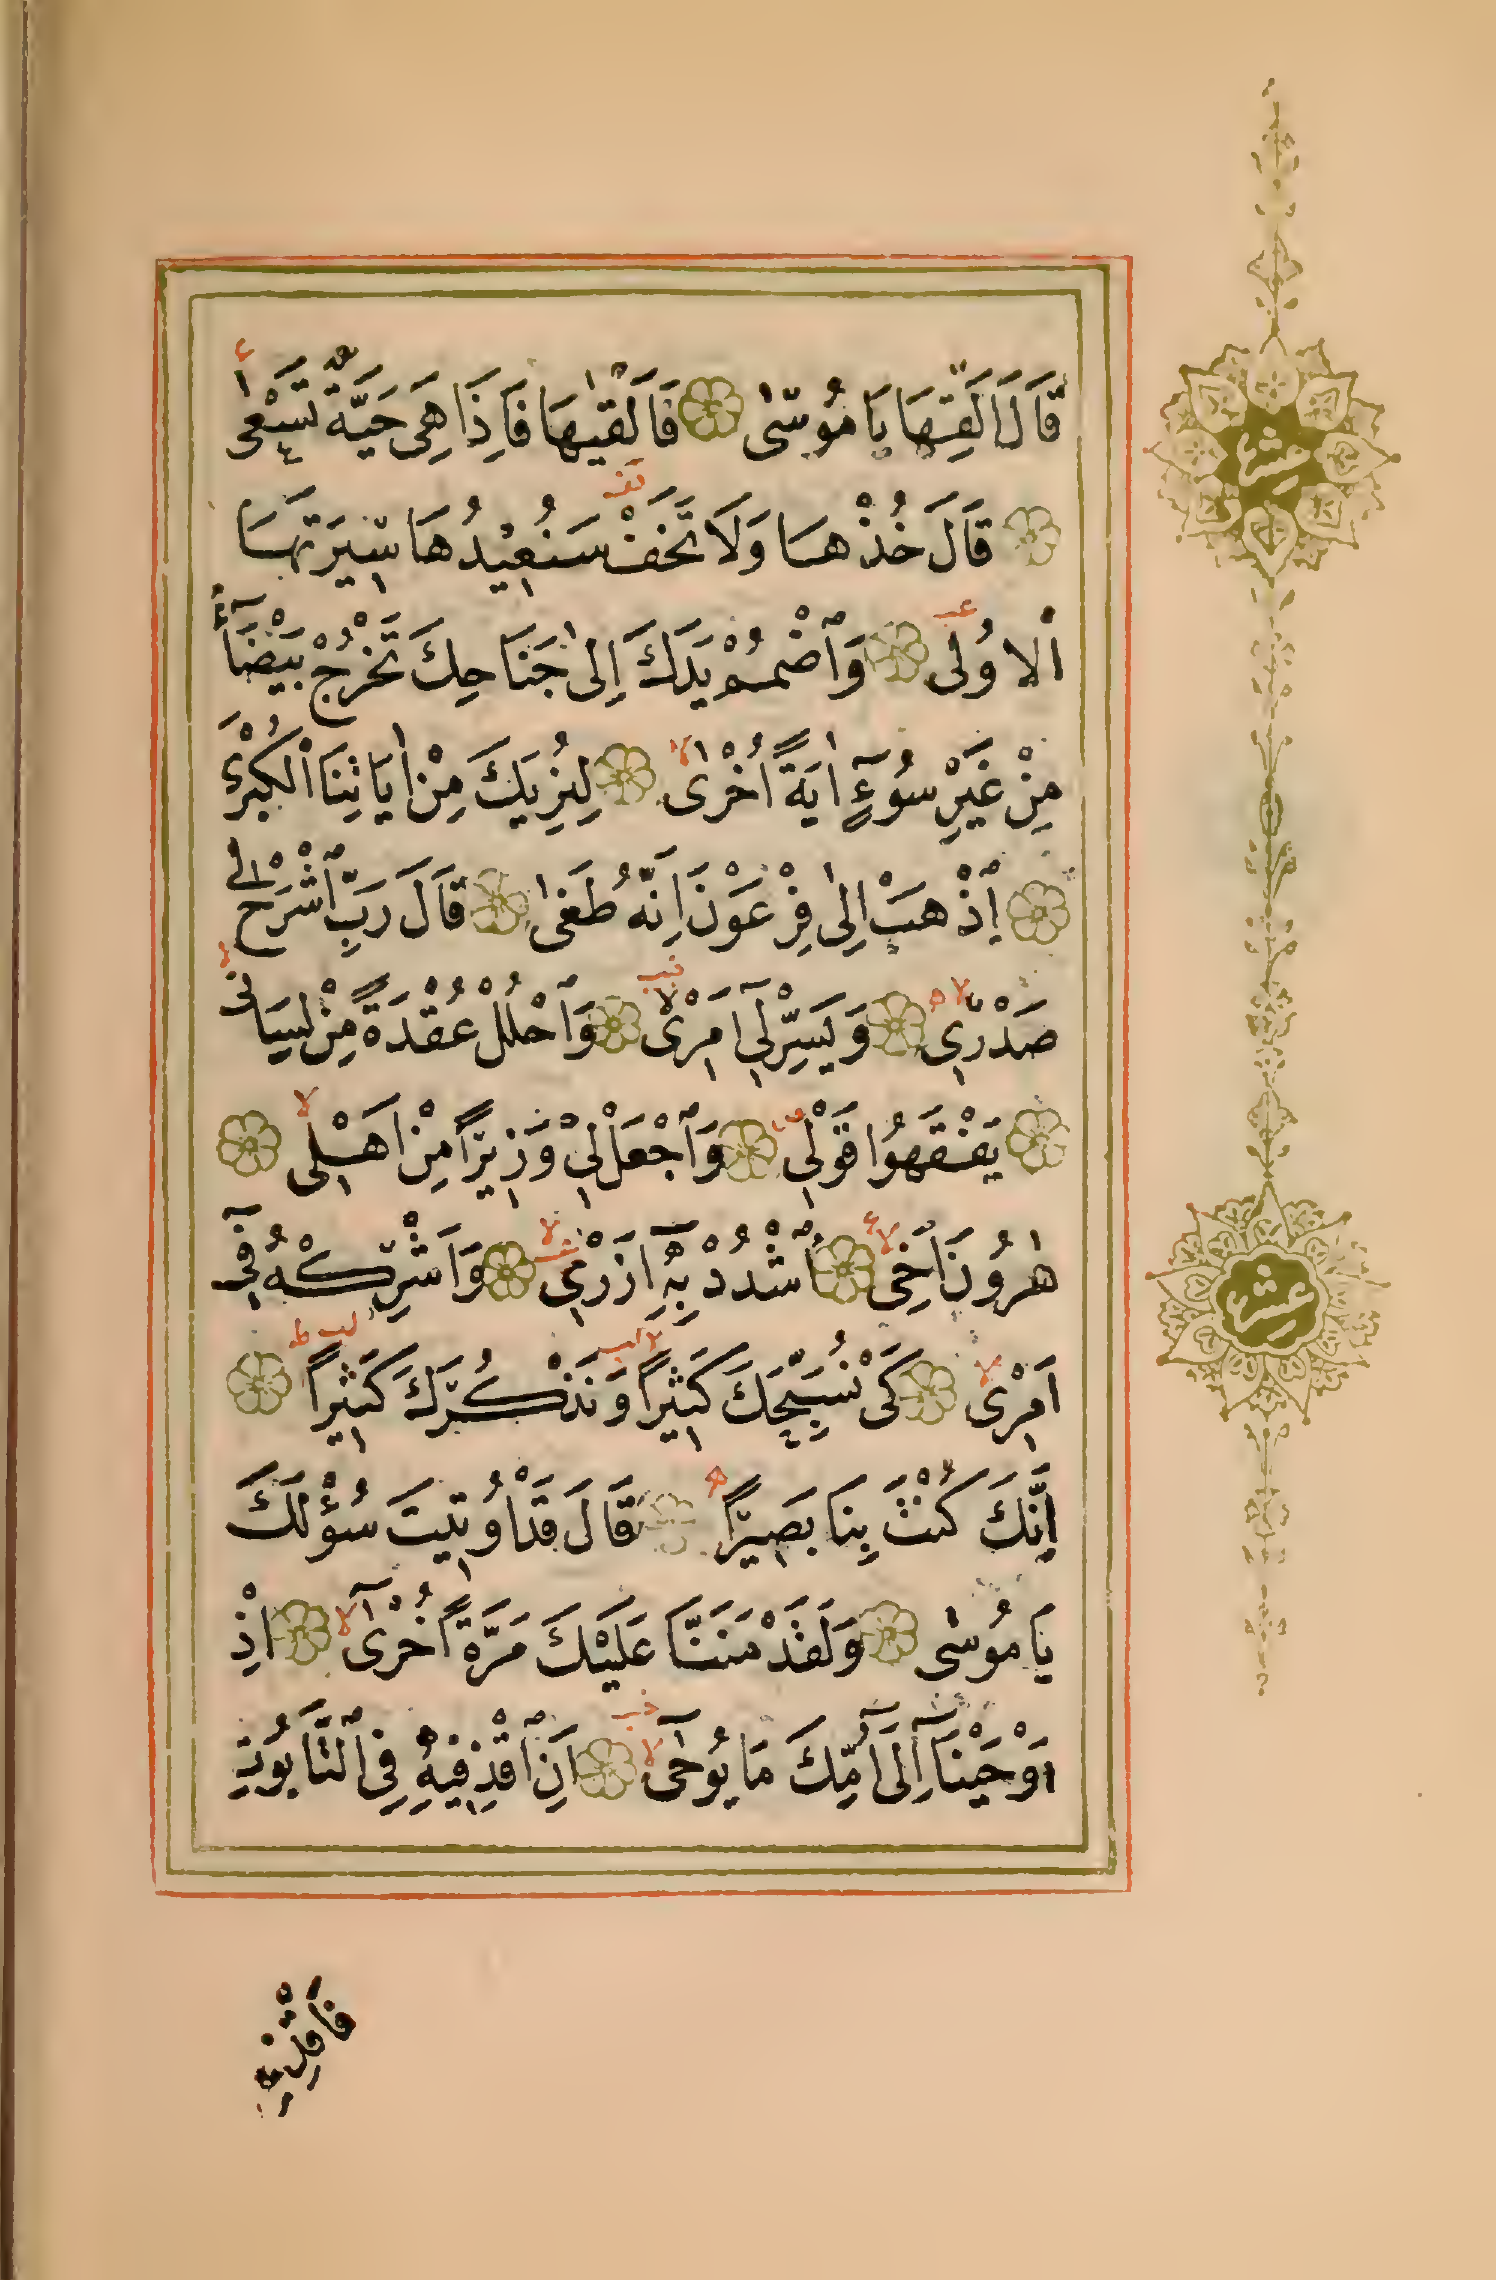 قَالَ اَلْقِهَا يَا مُوسٰى فَاَلْقٰيهَا فَاِذَا هِىَ حَيَّةٌ تَسْعٰى
قَالَ خُذْهَا وَلَا تَخَفْ سَنُعِيدُهَا سِيرَتَهَا
الْاُولٰى وَاضْمُمْ يَدَكَ اِلٰى جَنَاحِكَ تَخْرُجْ بَيْضَآءَ
مِنْ غَيْرِ سُوٓءٍ اٰيَةً اُخْرٰى لِنُرِيَكَ مِنْ اٰيَاتِنَا الْكُبْرٰى
اِذْهَبْ اِلٰى فِرْعَوْنَ اِنَّهُ طَغٰى قَالَ رَبِّ اشْرَحْ لِى
صَدْرِى وَيَسِّرْ لِىٓ اَمْرِى وَاحْلُلْ عُقْدَةً مِنْ لِسَانِى
يَفْقَهُوا قَوْلِى وَاجْعَلْ لِى وَزِيرًا مِنْ اَهْلِى
هٰرُونَ اَخِى اُشْدُدْ بِهٓ اَزْرِى وَاَشْرِكْهُ فِىٓ
اَمْرِى كَىْ نُسَبِّحَكَ كَثِيرًا وَنَذْكُرَكَ كَثِيرًا
اِنَّكَ كُنْتَ بِنَا بَصِيرًا قَالَ قَدْ اُوتِيتَ سُؤْلَكَ
يَا مُوسٰى وَلَقَدْ مَنَنَّا عَلَيْكَ مَرَّةً اُخْرٰىٓ اِذْ
اَوْحَيْنَآ اِلٰىٓ اُمِّكَ مَا يُوحٰىٓ اَنِ اقْذِفِيهِ فِى التَّابُوتِ
فَاقْذِفِيهِ
عشر
عشر